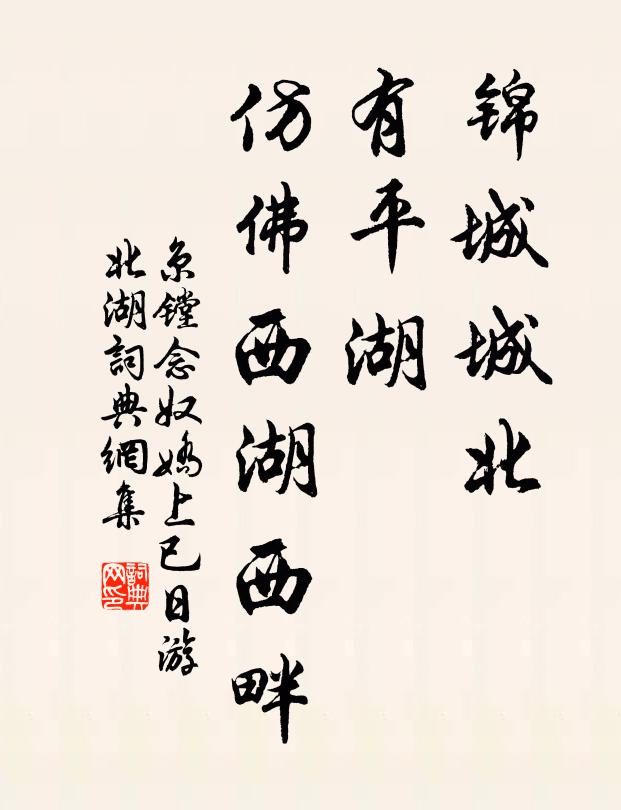 锦城城北
有平湖
仿佛西湖西畔
京镗念奴娇上巳日游
北湖詞典網集
詞典网印